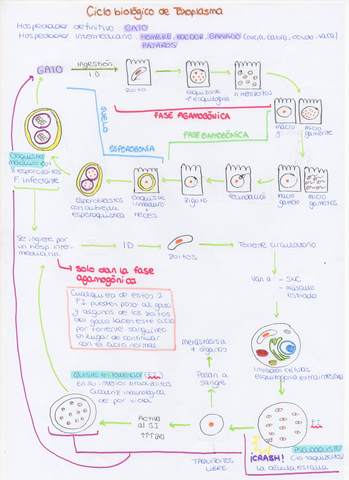 Ciclo biológico de Toxoplasma
Hospedador definitivo: GATO
Hospedador intermediario: HOMBRE, ROEDOR, GANADO (oveja, cabra, cerdo, vaca)
PÁJAROS
GATO
ingestión
I.D
zoito
esquizonte
+ esquizogonia
merozoitos
FASE AGAMOGÓNICA
SUELO
FASE GAMOGÓNICA
ESPOROGONIA
macro y
micro
gamonte
Ooquiste
maduro con
esporozoitos
F. infectante
Esporoblastos
con cubierta
esporoquística
Ooquiste
inmaduro
heces
zigoto
fecundación
macro
gameto
micro
gametos
Se ingiere por
un hosp. inter-
mediario
ID
zoitos
Torrente circulatorio
Solo dan la fase
agamogónica
Van a - SNC
- músculo
estriado
Cualquiera de estos 2
F.I pueden pasar al gato
y algunos de los zoitos
del gato hacer este ciclo
por torrente sanguíneo
en lugar de continuar
con el ciclo normal
Metástasis a
+ órganos
Invaden células
Esquizogonia extraintestinal
Pasan a
sangre
En su interior
Activa
al SI
TAQUIZOITOS
LIBRE
F.I
PSEUDOQUISTE
¡CRASH!
La célula estalla